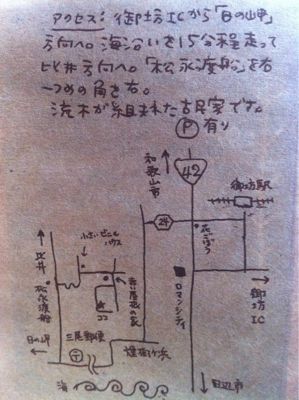 アクセス：御坊ICから「日の岬」
方向へ。海沿いを15分程走って
比井方向へ。「松永渡船」を右
一つめの角を右。
流木が組まれた古民家です。
P 有り
和歌山市
42
御坊駅
24
花ごぼう
小さいビニール
ハウス
比井
松永渡船
赤い屋根の家
ココ
ロマンシティ
御坊
IC
三尾郵便
〒
日の岬
煙樹ヶ浜
海
田辺市